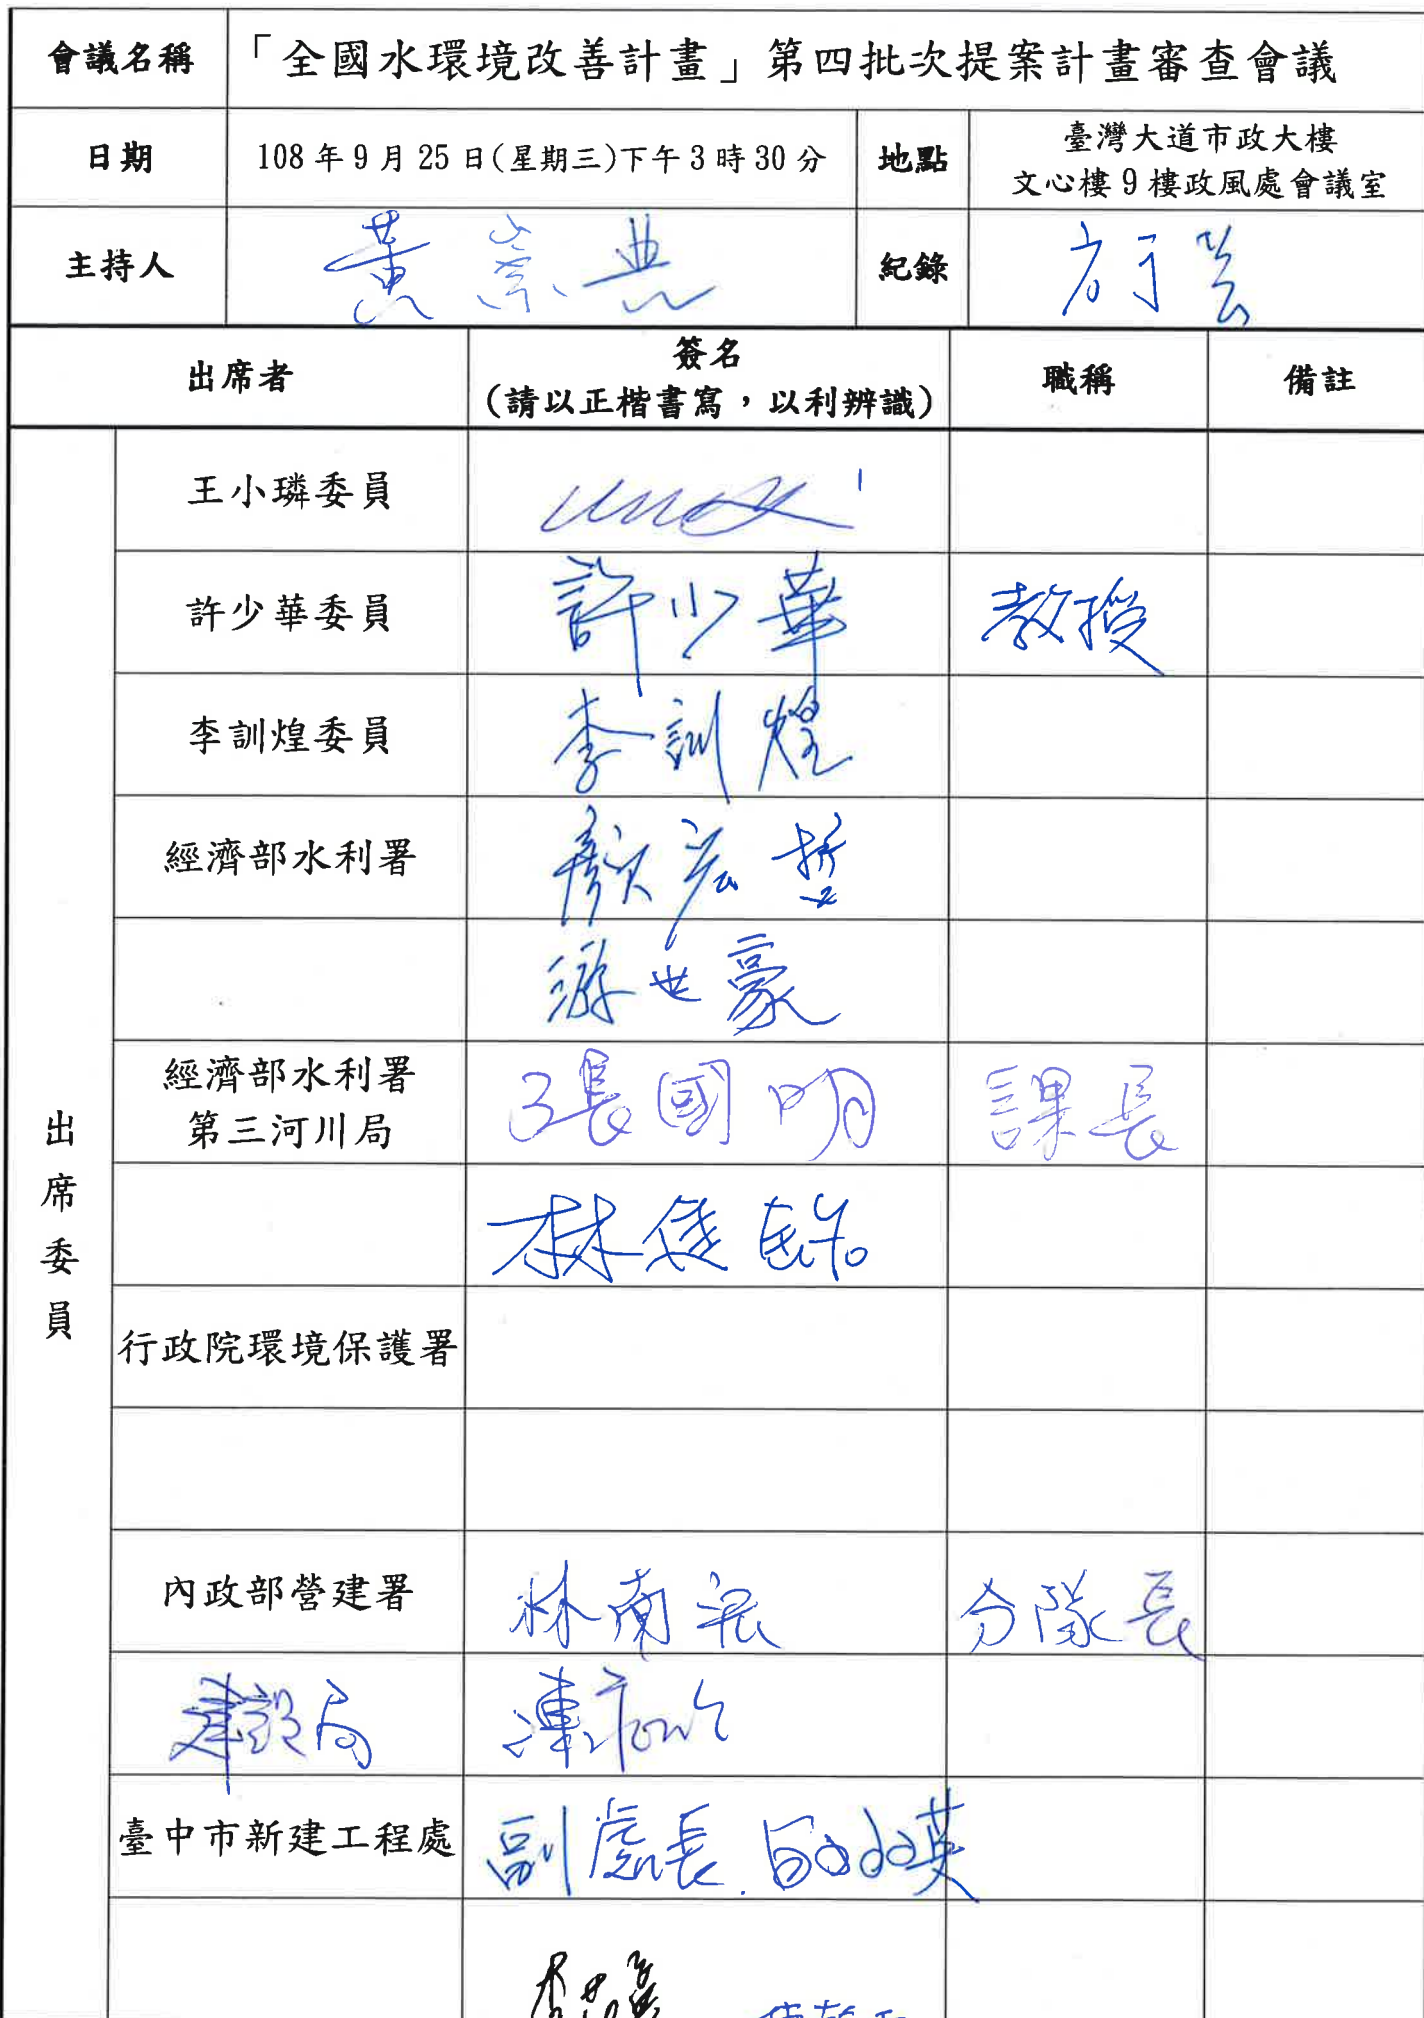 會議名稱 「全國水環境改善計畫」第四批次提案計畫審查會議
日期 108年9月25日(星期三)下午3時30分 地點 臺灣大道市政大樓
文心樓9樓政風處會議室
主持人 黃崇典 紀錄
出席者 簽名 職稱 備註
(請以正楷書寫，以利辨識)
出席委員
王小璘委員
許少華委員 許少華 教授
李訓煌委員 李訓煌
經濟部水利署 顏宏哲
游世豪
經濟部水利署
第三河川局 張國明 課長
林
行政院環境保護署
內政部營建署 林南 分隊長
建設局 連
臺中市新建工程處 副處長 英